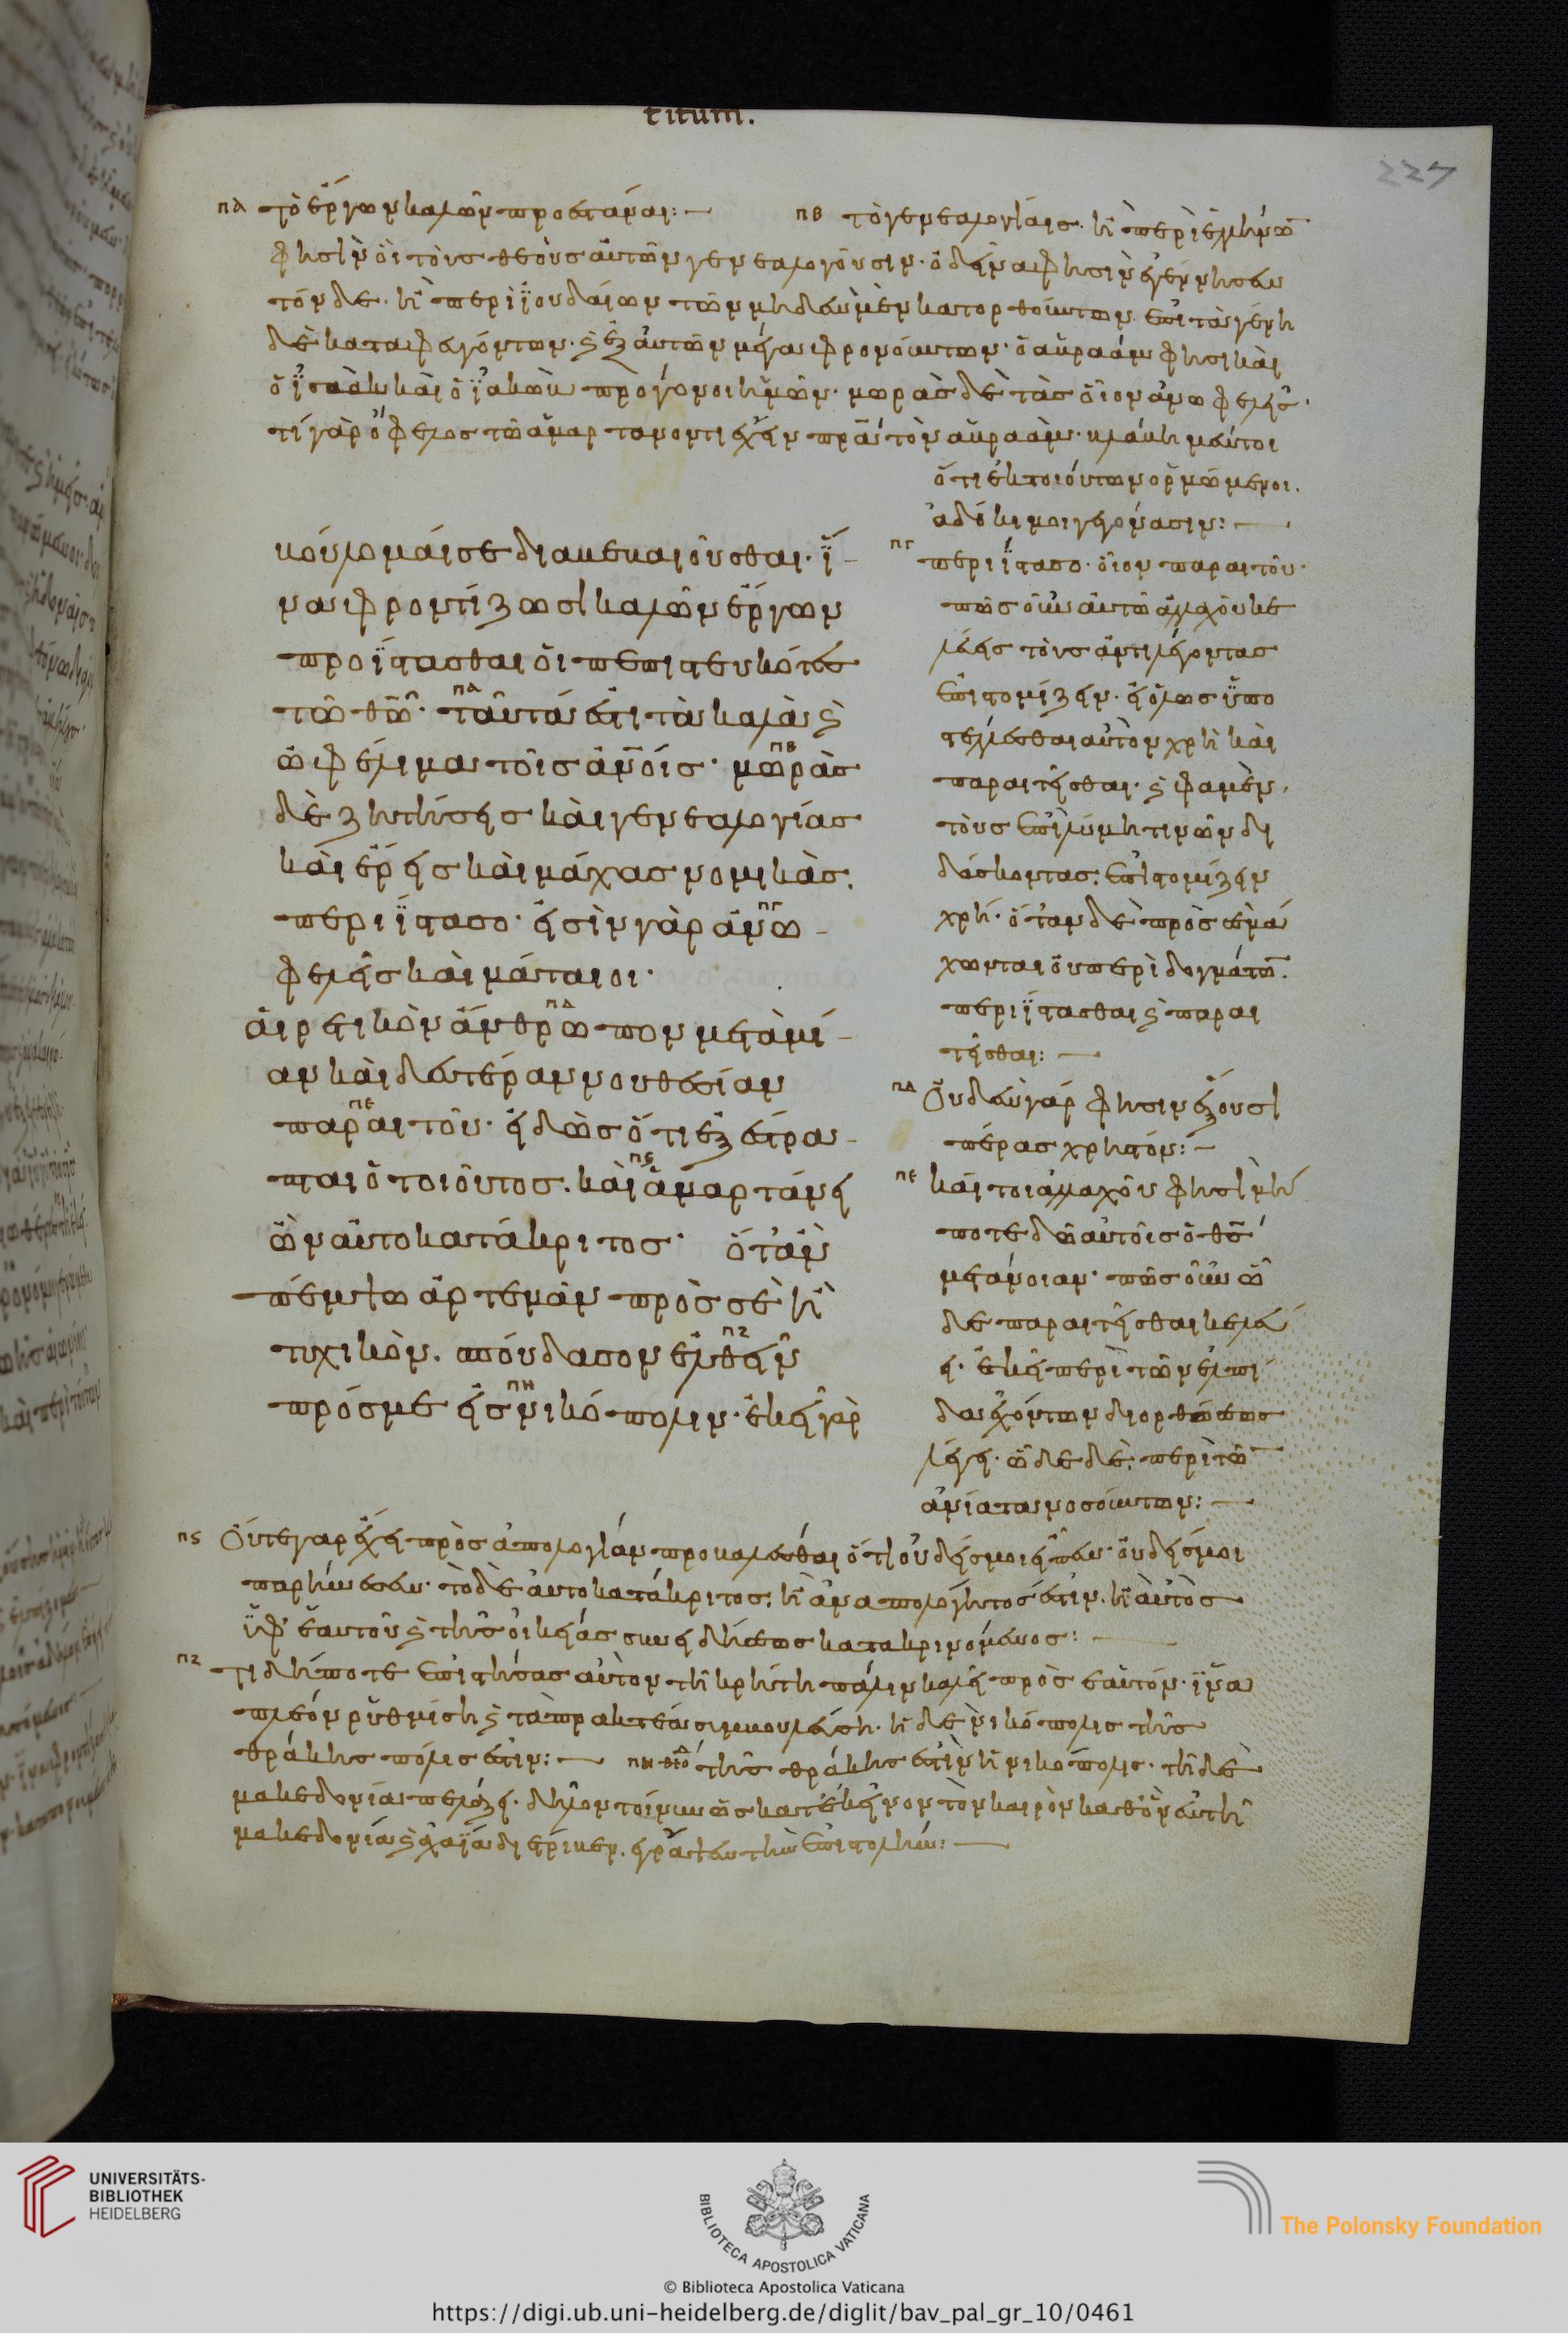 titum.
227
πα τὸ ἔργων καλῶν προϊστάναι:— πβ τὸ γενεαλογίαις. ἢ περὶ ἑλλήνων
φησὶν οἳ τοὺς θεοὺς αὐτῶν γενεαλογοῦσιν. ὁ δεῖνα φησὶν ἐγέννησεν
τόνδε. ἢ περὶ ἰουδαίων τῶν μηδὲν μὲν κατορθούντων. ἐπὶ τὰ γένη
δὲ καταφευγόντων. καὶ ἐξ αὐτῶν μέγα φρονούντων. ὁ ἀβραάμ φησι καὶ
ὁ ἰσαὰκ καὶ ὁ ἰακὼβ πρόγονοι ἡμῶν. μωρὰς δὲ τὰς οἷον ἀνωφελεῖς.
τί γὰρ ὄφελος τῶ ἁμαρτάνοντι ἔχειν πρα τὸν ἀβραάμ. βλάβη μέντοι
ὅτι ἐκ τοιούτων ὁρμώμενοι.
ἀδόκιμοι γεγόνασιν:—
βούλομαί σε διαβεβαιοῦσθαι. ἵ-
να φροντίζωσι καλῶν ἔργων
προΐστασθαι οἱ πεπιστευκότες
τῶ θῶ. πα ταῦτά ἐστι τὰ καλὰ καὶ
ὠφέλιμα τοῖς ἀνοις. πβ μωρὰς
δὲ ζητήσεις καὶ γενεαλογίας
καὶ ἔρεις καὶ μάχας νομικὰς.
περιΐστασο. εἰσὶν γὰρ πγ ἀνω-
φελεῖς καὶ μάταιοι.
αἱρετικὸν ἄνθρωπον πδ μετὰ μί-
αν καὶ δευτέραν νουθεσίαν
παραιτοῦ. πε εἰδὼς ὅτι ἐξέστρα-
πται ὁ τοιοῦτος. καὶ πς ἁμαρτάνει
ὢν αὐτοκατάκριτος. ὅταν
πέμψω ἀρτεμᾶν πρὸς σὲ ἢ
τυχικὸν. σπούδασον ἐλθεῖν πζ
πρός με εἰς νικόπολιν. πη ἐκεῖ γὰρ
πγ περιΐστασο. οἷον παραιτοῦ.
πῶς οὖν αὐτῶ ἀλλαχοῦ κε
λεύεις τοὺς ἀντιλέγοντας
ἐπιστομίζειν. εἰ ὅλως ὑπο
στέλλεσθαι αὐτὸν χρὴ καὶ
παραιτεῖσθαι. καὶ φαμὲν,
τοὺς ἐπὶ λύμη τινῶν δι
δάσκοντας. ἐπιστομίζειν
χρή. ὅταν δὲ πρός σε μά
χωνται οὐ περὶ δογμάτων.
περιΐστασθαι καὶ παραι
τεῖσθαι:—
πδ Οὐδὲν γάρ φησιν ἕξουσι
πέρας χρηστόν:—
πε καί τοι ἀλλαχοῦ φησὶ μή
ποτε δῶ αὐτοῖς ὁ θς
μετάνοιαν. πῶς οὖν ὧ
δε παραιτεῖσθαι κελεύ
ει. ἐκεῖ περὶ τῶν ἐλπί
δα ἐχόντων διορθώσεως
λέγει. ὧδε δὲ, περὶ τῶν
ἀνίατα νοσούντων:—
πς Οὔτε γὰρ ἔχει πρὸς ἀπολογίαν προβαλέσθαι ὅτι οὐδείς μοι εἶπεν. οὐδείς μοι
παρήνεσεν. τὸ δὲ αὐτοκατάκριτος. ἢ ἀναπολόγητός ἐστιν. ἢ αὐτὸς
ὑφ' ἑαυτοῦ καὶ τῆς οἰκείας συνειδήσεως κατακρινόμενος:—
πζ τι δήποτε ἐπιστήσας αὐτὸν τῆ κρήτη πάλιν καλεῖ πρὸς ἑαυτόν. ἵνα
πλέον ῥυθμίση καὶ τὰ πρακτέα συμβουλεύση. ἡ δὲ νικόπολις τῆς
θράκης πόλις ἐστίν:— πη τῆς θράκης ἐστὶν ἡ νικόπολις. τῆ δὲ
μακεδονία πελάζει. δῆλον τοίνυν ὡς κατ' ἐκεῖνον τὸν καιρὸν καθ' ὃν ἐν τῆ
μακεδονία καὶ ἀχαΐα διέτριβεν. ἔγραψεν τὴν ἐπιστολήν:—
UNIVERSITÄTS-
BIBLIOTHEK
HEIDELBERG
BIBLIOTECA APOSTOLICA VATICANA
The Polonsky Foundation
© Biblioteca Apostolica Vaticana
https://digi.ub.uni-heidelberg.de/diglit/bav_pal_gr_10/0461